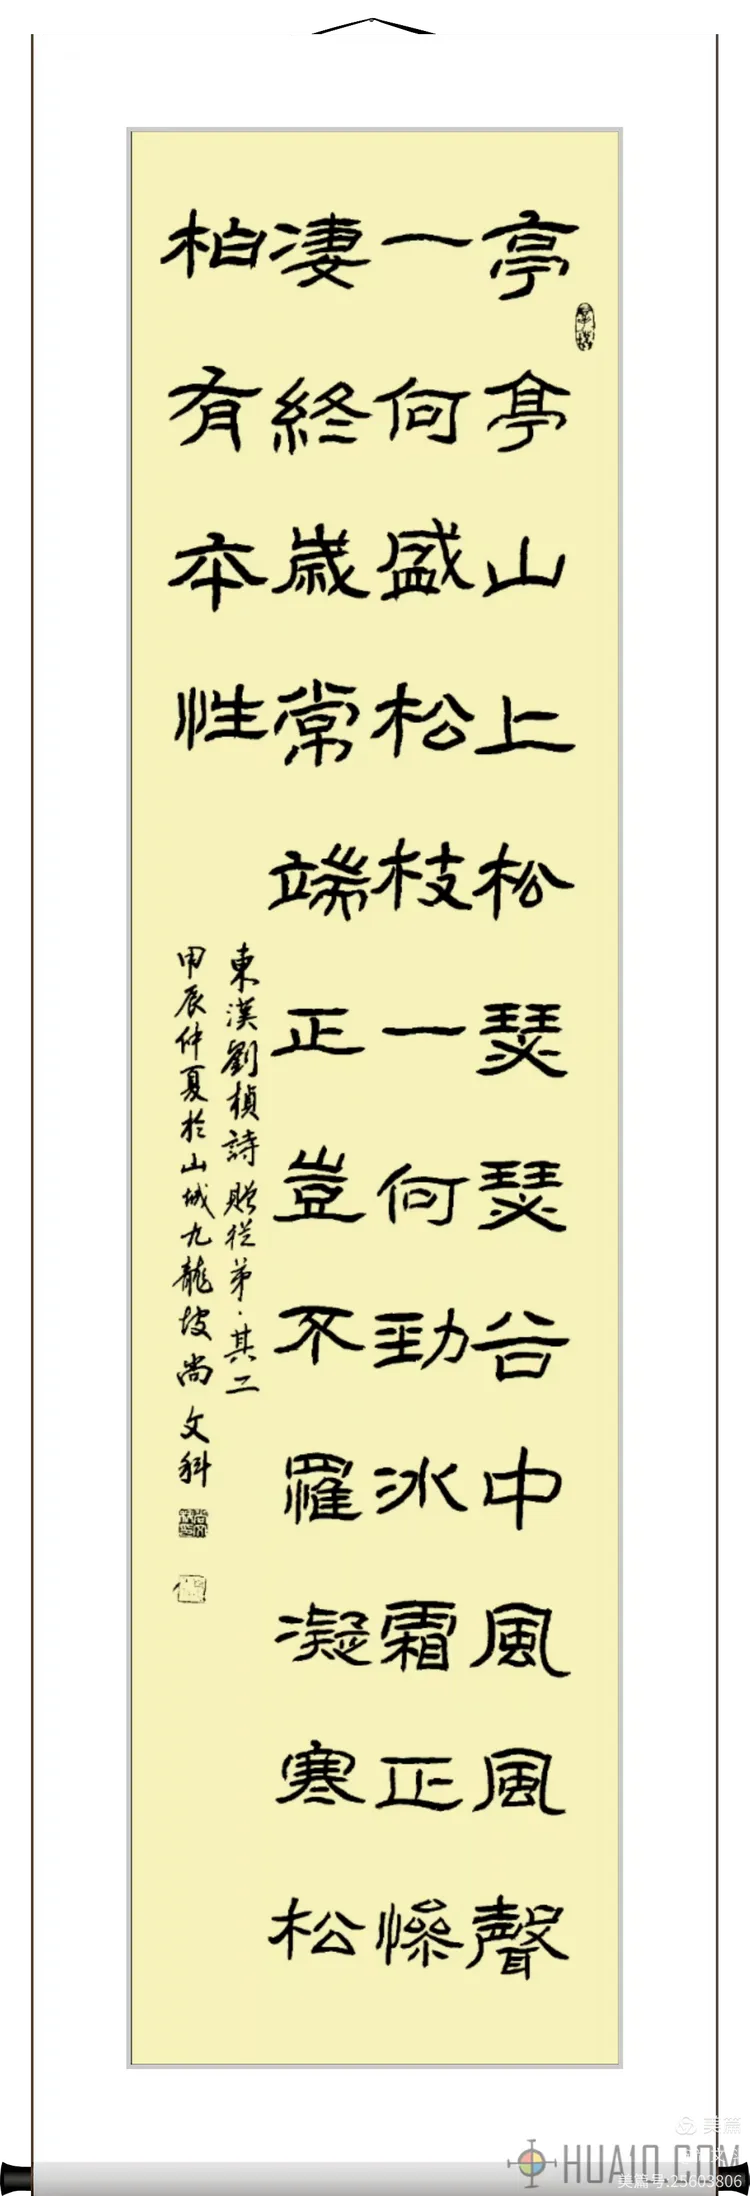 亭亭山上松瑟瑟谷中風風聲
一何盛松枝一何勁冰霜正慘
凄終歲常端正豈不羅凝寒松
柏有本性
東漢劉楨詩贈從弟·其二
甲辰仲夏於山城九龍坡尚文科
美篇
HUA10.COM
美篇号:25603806